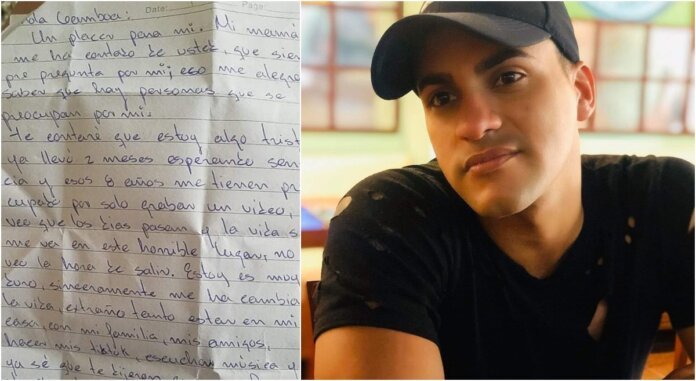 Date: Page:
Hola Gamboa:
Un placer para mi. Mi mamá
me ha contado de usted, que siem
pre pregunta por mi, eso me alegra
saber que hay personas que se
preocupan por mi.
te contare que estoy algo trist
ya llevo 2 meses esperando sen
cia y esos 8 años me tienen pr
cupado por solo grabar un video,
veo que los dias pasan y la vida s
me va en este horrible lugar, no
veo la hora de salir. Estoy es muy
duro, sinceramente me ha cambia
la vida, extraño tanto estar en mi
casa, con mi familia, mis amigos,
hacer mis tiktok, escuchar música y
ya sé que te dijeron